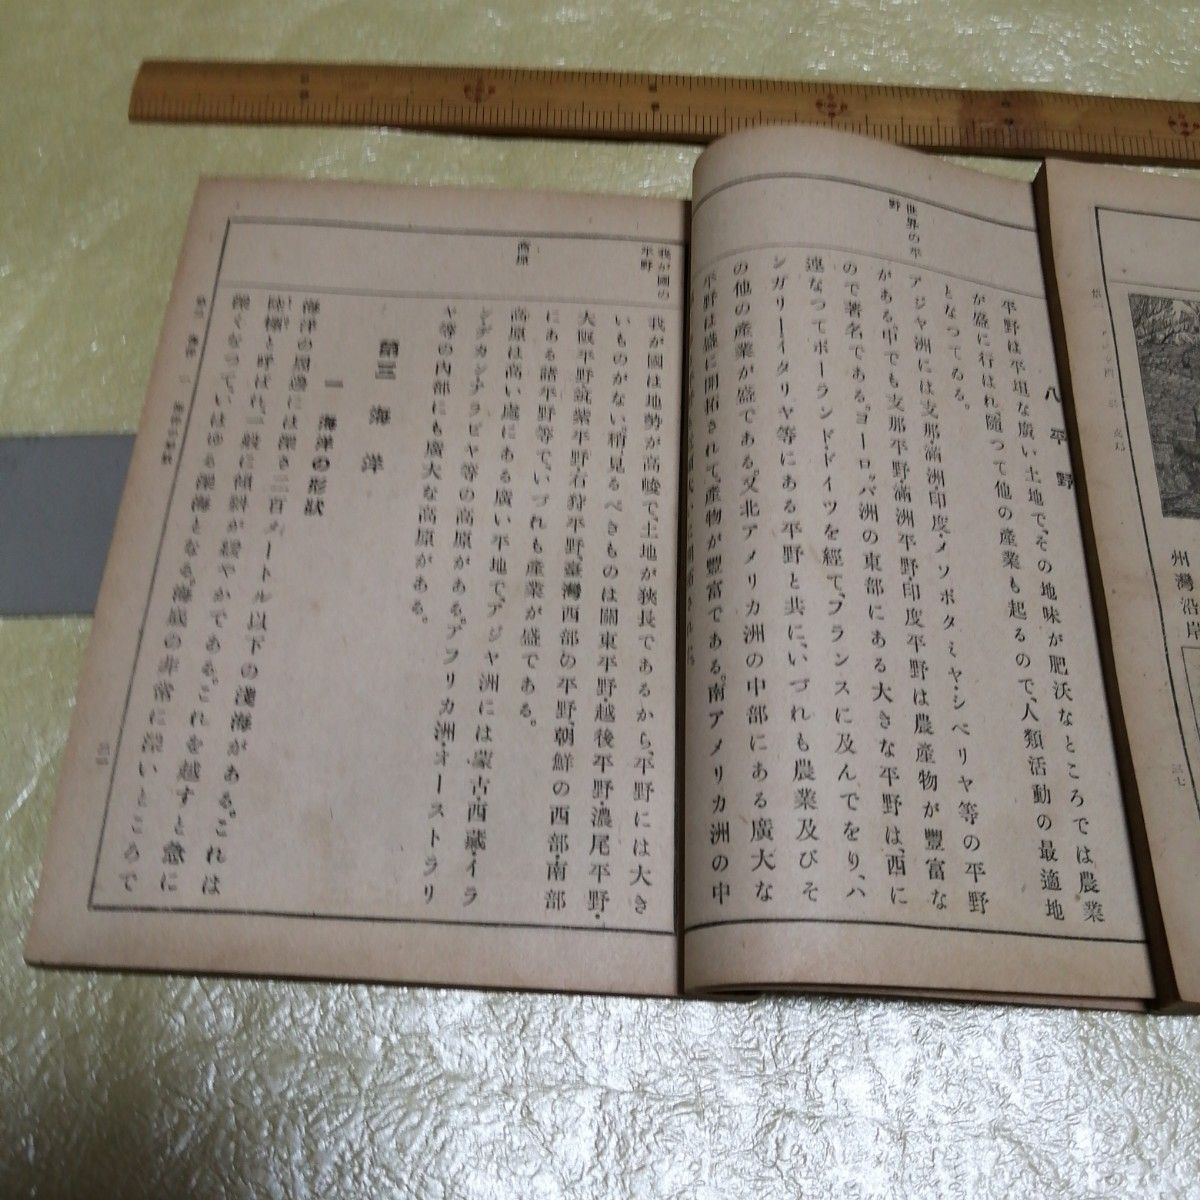 八 平 野
平野は平坦な廣い土地で、その地味が肥沃なところでは農業
が盛に行はれ、隨つて他の產業も起るので、人類活動の最適地
となつてゐる。
世界の平
野
アジヤ洲には支那・滿洲・印度・メソポタミヤ・シベリヤ等の平野
がある。中でも支那平野・滿洲平野・印度平野は農產物が豐富な
ので著名である。ヨーロッパ洲の東部にある大きな平野は、西に
連なつてポーランド・ドイツを經て、フランスに及んでをり、ハ
ンガリー・イタリヤ等にある平野と共に、いづれも農業及びそ
の他の產業が盛である。又北アメリカ洲の中部にある廣大な
平野は盛に開拓されて、產物が豐富である。南アメリカ洲の中
我が國の
平野
我が國は地勢が高峻で、土地が狹長であるから、平野には大き
いものがない。稍見るべきものは關東平野・越後平野・濃尾平野・
大阪平野・筑紫平野・石狩平野・臺灣西部の平野、朝鮮の西部・南部
にある諸平野等で、いづれも產業が盛である。
高原
高原は高い處にある廣い平地で、アジヤ洲には蒙古・西藏・イラ
ン・デカン・アラビヤ等の高原がある。アフリカ洲・オーストラリ
ヤ等の內部にも廣大な高原がある。
第三 海 洋
一 海洋の形狀
海洋の周邊には深さ二百メートル以下の淺海がある。これは
と呼ばれ、一般に傾斜が緩やかである。これを越すと急に
深くなつて、いはゆる深海となる。海底の非常に深いところで
州灣沿岸
三七